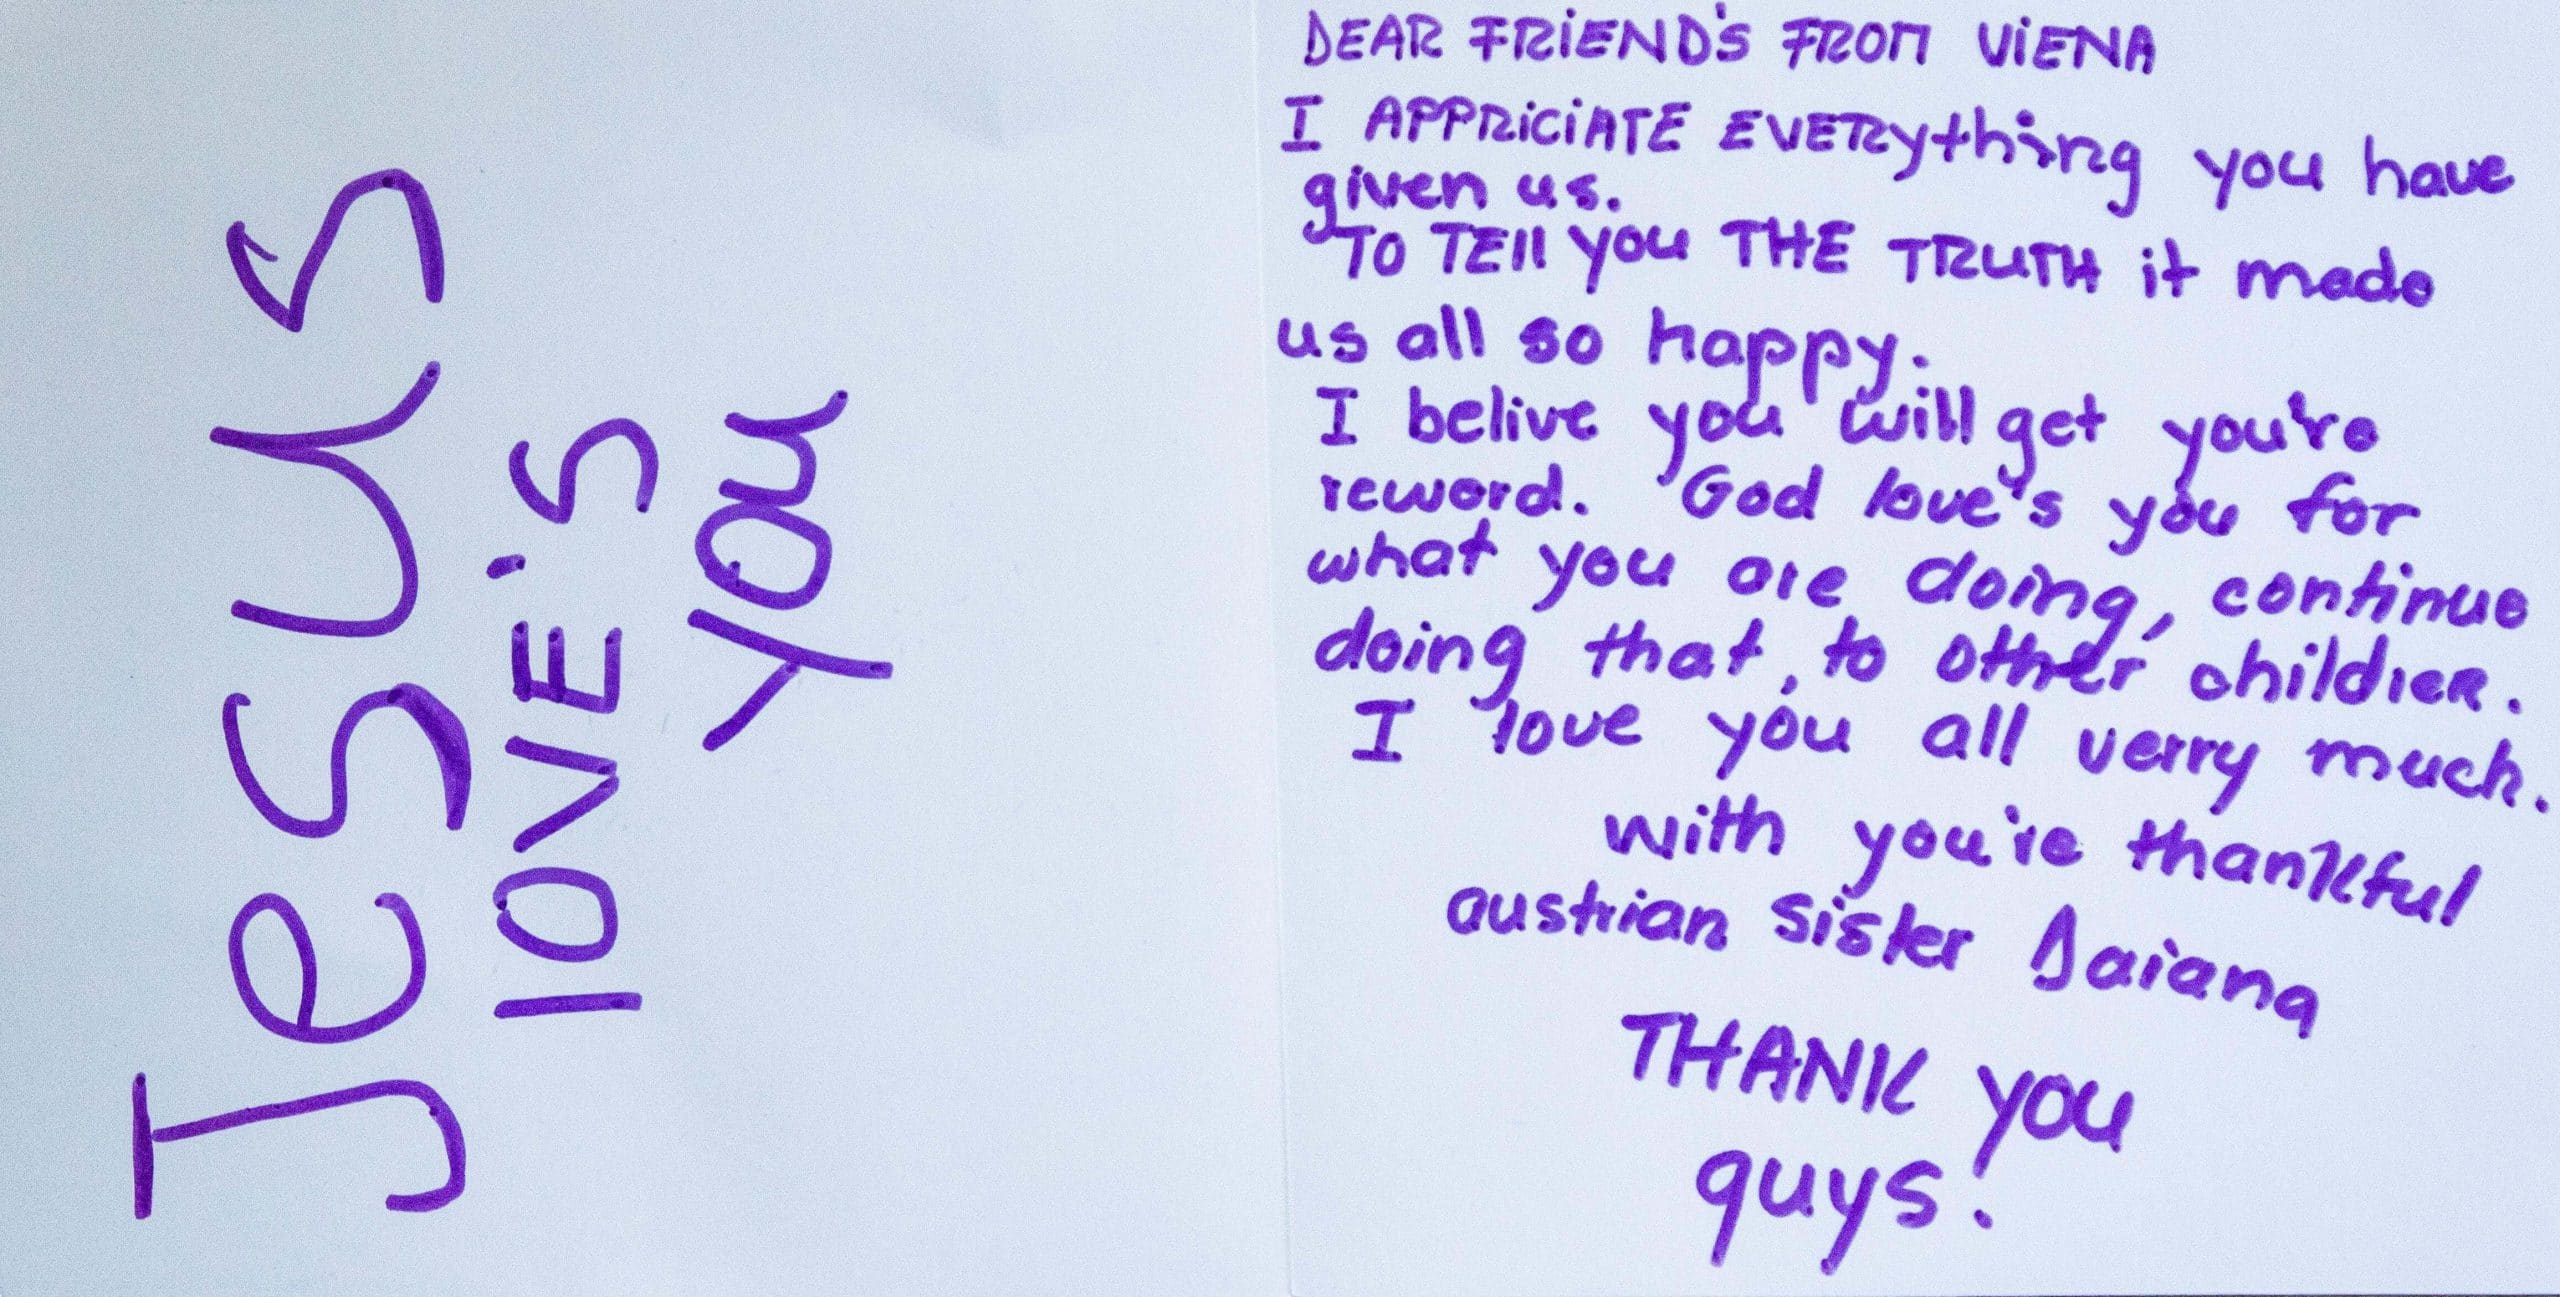 Jesus
lOVE's
you
DEAR FRiEND's FROM ViENA
I APPRiCiATE EVERything you have
given us.
TO TEll you THE TRuTH it made
us all so happy.
I belive you will get you're
reword. God love's you for
what you are doing, continue
doing that, to other childrer.
I love you all verry much.
with you're thankful
austrian sister Daiana
THANK you
guys!